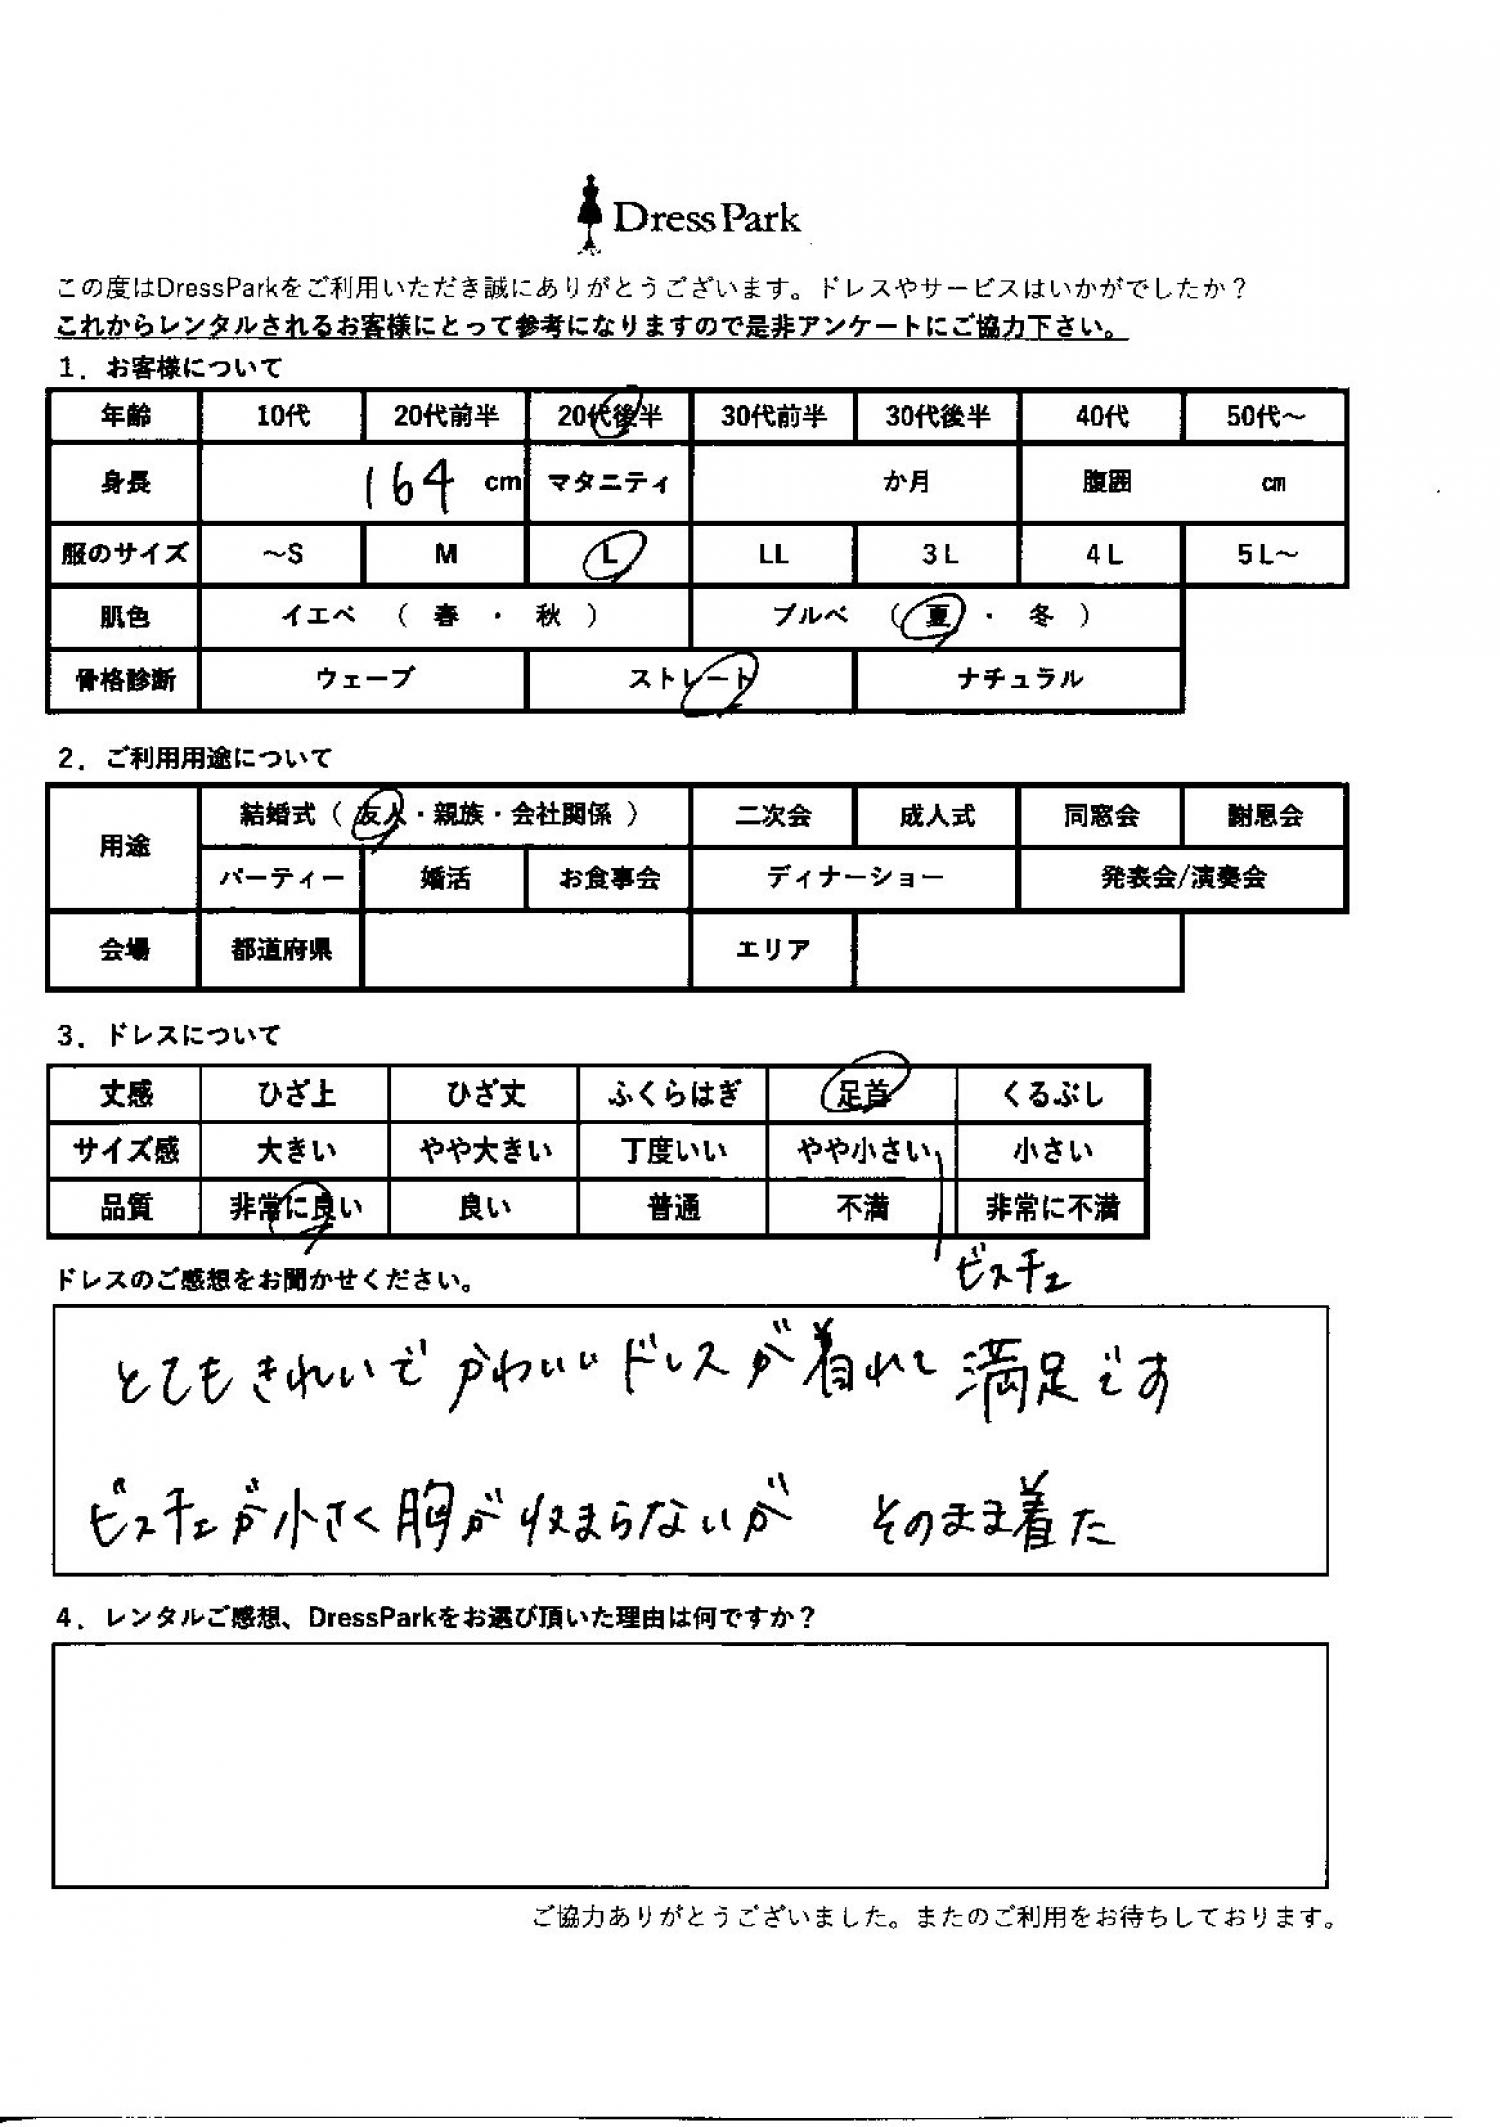 DressPark
この度はDressParkをご利用いただき誠にありがとうございます。ドレスやサービスはいかがでしたか？
これからレンタルされるお客様にとって参考になりますので是非アンケートにご協力下さい。
1．お客様について
年齢 10代 20代前半 20代後半 30代前半 30代後半 40代 50代～
身長 164 cm マタニティ か月 腹囲 cm
服のサイズ ～S M L LL 3L 4L 5L～
肌色 イエベ （ 春 ・ 秋 ） ブルベ （ 夏 ・ 冬 ）
骨格診断 ウェーブ ストレート ナチュラル
2．ご利用用途について
用途 結婚式（ 友人・親族・会社関係 ） 二次会 成人式 同窓会 謝恩会
パーティー 婚活 お食事会 ディナーショー 発表会/演奏会
会場 都道府県 エリア
3．ドレスについて
丈感 ひざ上 ひざ丈 ふくらはぎ 足首 くるぶし
サイズ感 大きい やや大きい 丁度いい やや小さい 小さい
品質 非常に良い 良い 普通 不満 非常に不満
ビスチェ
ドレスのご感想をお聞かせください。
とてもきれいでかわいいドレスが着れて満足です
ビスチェが小さく胸が収まらないが そのまま着た
4．レンタルご感想、DressParkをお選び頂いた理由は何ですか？
ご協力ありがとうございました。またのご利用をお待ちしております。